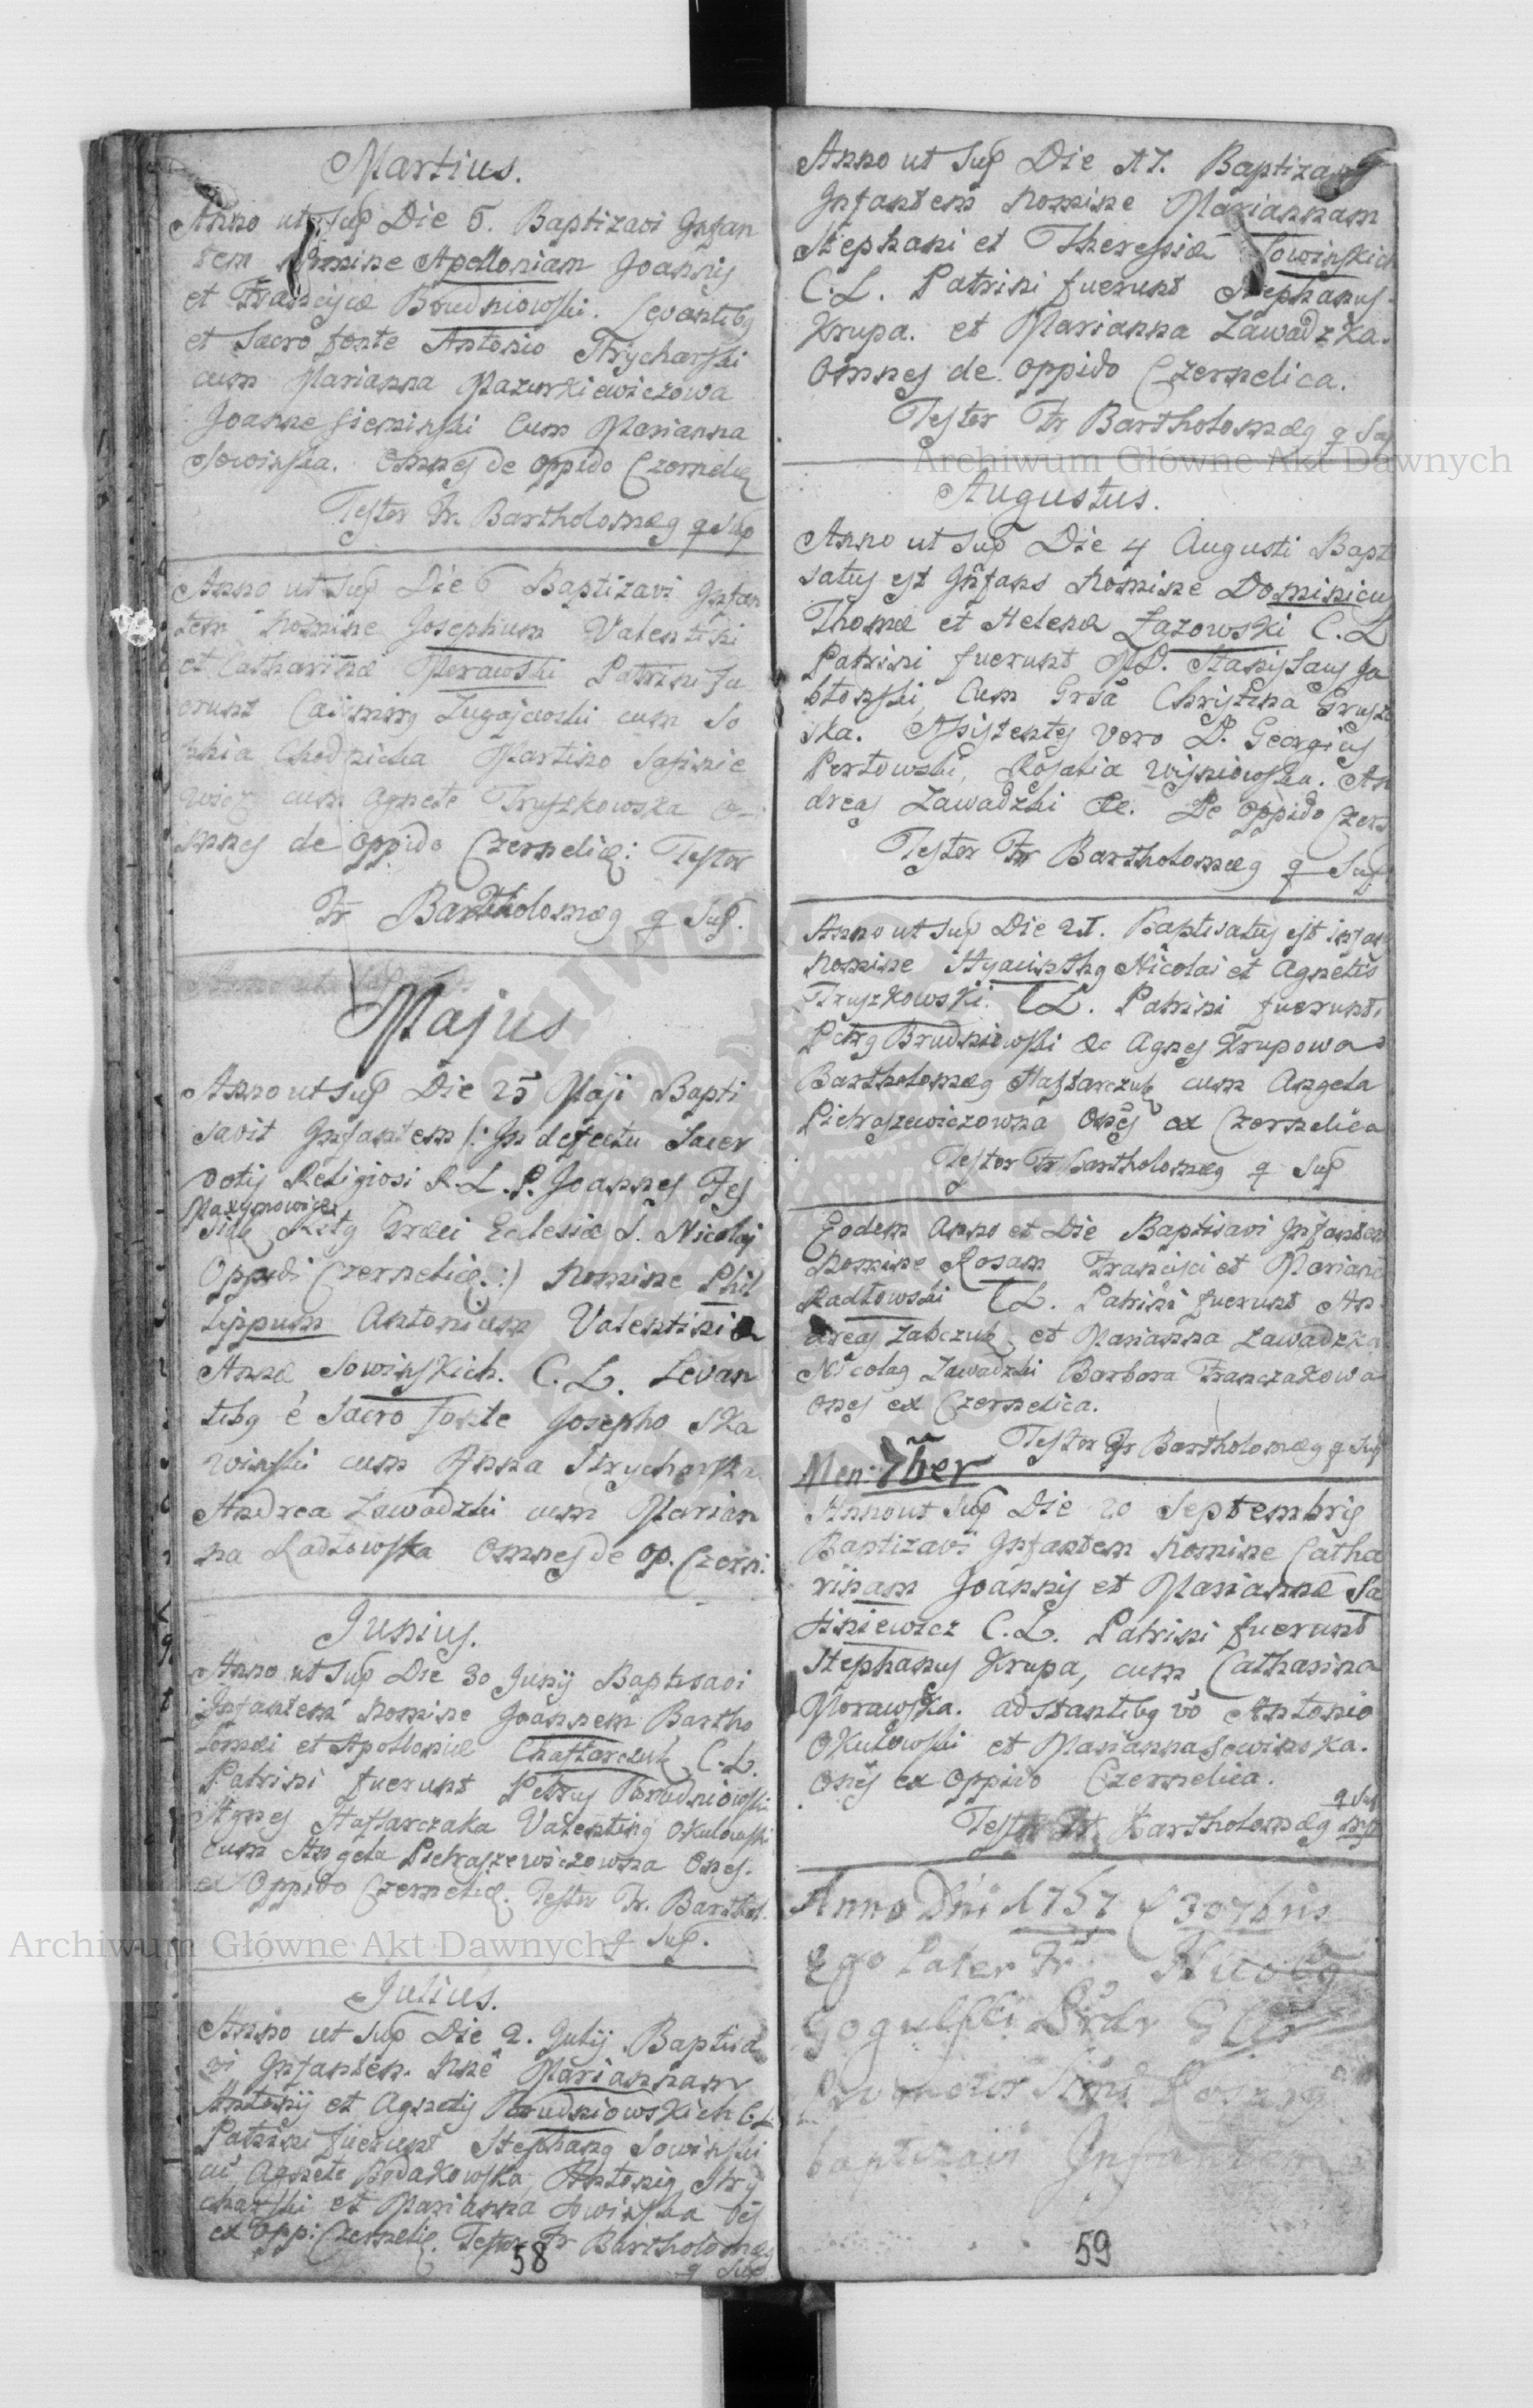 Martius.
Anno ut Sup Die 6. Baptizavi Infan
tem Nomine Apolloniam Joannis
et Franciscæ Brudniowski. Levantibg
et Sacro fonte Antonio Strycharski
cum Marianna Mazurkiewiczowa
Joanne Sieminski Cum Marianna
Sowinska. Omnes de oppido Czerneliæ
Testor Fr. Bartholomæg q Sup
Anno ut Sup Die 6 Baptizavi Infan
tem Nomine Josephum Valentini
et Catharinæ Morawski Patrini fu
erunt Casimirg Lugajewski cum So
phia Chodnicka Martino Safinie
wicz cum Agnete Truszkowska O-
mnes de oppido Czerneliæ: Testor
Fr Bartholomæg q Sup.
Majus
Anno ut Sup Die 25 Maji Bapti
savit Infantem /: In defectu Sacer
dotis Religiosi R.L.P. Joannes Tes
Maxymowicz
Græci Eclesiæ S. Nicolai
Oppidi Czerneliæ :) Nomine Phil
lippum Antonium Valentini
Annæ Sowinskich. C.L. Levan
tibg é Sacro fonte Josepho Ska
winski cum Anna Strycharska
Andrea Zawadzki cum Marian
na Radlowska Omnes de op. Czern:
Junius.
Anno ut Sup Die 30 Junij Baptisavi
Infantem Nomine Joannem Bartho
lomæi et Apolloniæ Chaftarczuk C.L.
Patrini fuerunt Petrus Brudniowski
Agnes Haftarczaka Valenting Okulowski
cum Angela Pietraszewiczowna Ones.
ex Oppido Czerneliæ. Testor Fr. Barthol.
q Sup.
Julius.
Anno ut Sup Die 2. Julij Baptisa
vi Infantem Nne Mariannam
Antonij et Agnetis Brudniowskich C.L
Patrini fuerunt Stephang Sowinski
cu Agnete Bodakowska, Antonig Stry
charski et Marianna Sowinska Oes
ex Oppi: Czerneliæ. Testor Fr Bartholomæg
q Sup
58
Anno ut Sup Die 17. Baptizavi
Infantem Nomine Mariannam
Stephani et Theresiæ Sowinskich
C.L. Patrini fuerunt Stephanus
Krupa. et Marianna Zawadzka.
Omnes de oppido Czernelica.
Testor Fr Bartholomæg q Sup
Augustus.
Anno ut Sup Die 4 Augusti Bapt
satus est Infans Nomine Dominicus
Thomæ et Helenæ Łazowski C.L
Patrini fuerunt MD. Stanislaus Ja
błonski, Cum Grsa Christina Grusze
ska. Assistentes Vero D. Georgius
Pertowski, Rosalia Wisniowska. An
dreas Zawadzki &c. De oppido Czern
Testor Fr Bartholomæg q Sup
Anno ut Sup Die 21. Baptisatus est infans
Nomine Hyacinthg Nicolai et Agnetis
Truszkowski. CL. Patrini fuerunt.
Petrg Brudniowski &c Agnes Krupowa
Bartholomæg Haftarczuk cum Angela
Pietraszewiczowna Ones ex Czernelica
Testor Fr Bartholomæg q Sup
Eodem Anno et Die Baptisavi Infantem
Nomine Rosam Francisci et Mariannæ
Radłowski CL. Patrini fuerunt An
dreas Zabczuk et Marianna Zawadzka
Nicolag Zawadzki Barbara Franczakowa
Ones ex Czernelica.
Testor Fr Bartholomæg q Sup
Men: 7ber
Anno ut Sup Die 20 Septembris
Baptizavi Infantem Nomine Catha
rinam Joannis et Mariannæ Sa
finiewicz C.L. Patrini fuerunt
Stephanus Krupa, cum Catharina
Morawska. adstantibg vo Antonio
Okułowski et Marianna Sowinska.
Ones ex oppido Czernelica.
q Sup
Testor Fr. Bartholomæg
Anno Dni 1757 30 7bris
Ego Pater Fr. Nicolg
Gogulski Ordr
Promotor Smi Rosarij
baptizavi Infantem
59
Archiwum Główne Akt Dawnych
Archiwum Główne Akt Dawnych